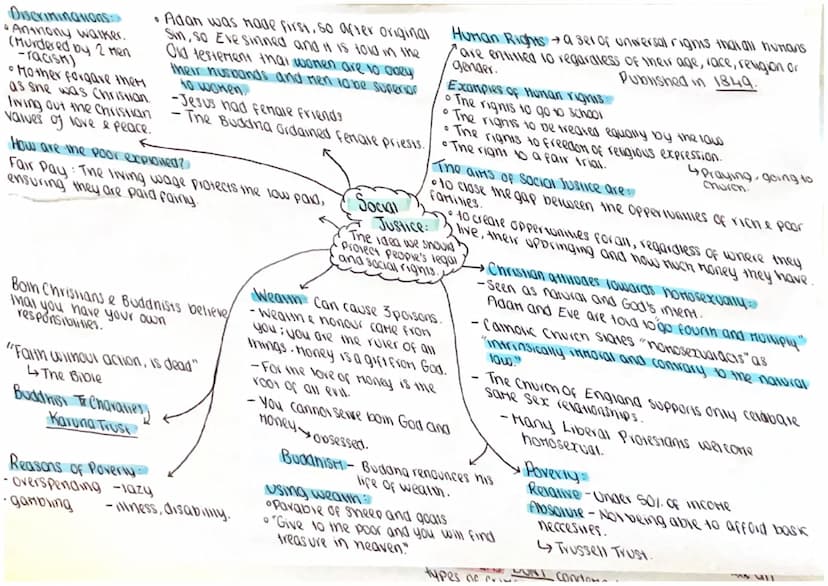 Discriminations:
• Anthony walker.
(Murdered by 2 men
- racism)
• Mother forgave them
as she was Christian
living out the Christian
values of love & peace.
• Adam was made first, so after original
Sin, so Eve sinned and it is told in the
Old testement that women are to obey
their husbands and men to be superior
to women
- Jesus had female friends
- The Buddha ordained female priests.
Human Rights → a set of universal rights that all humans
are entitled to regardless of their age, race, religion or
gender.
Published in 1849.
Examples of Human rights:
• The rights to go to school
• The rights to be treated equally by the law
• The rights to freedom of religious expression.
• The right to a fair trial.
↳ Praying, going to
church.
How are the poor exploited?
Fair Pay: The living wage protects the low paid,
ensuring they are paid fairly.
Social
Justice:
The idea we should
protect People's legal
and social rights.
The aims of Social Justice are:
• to close the gap between the opportunities of rich & poor
families.
• to create opportunities for all, regardless of where they
live, their upbringing and how much money they have.
Both Christians & Buddhists believe
that you have your own
responsibilities.
"Faith without action, is dead"
↳ The Bible
Buddhist Charities
Karuna Trust
Reasons of Poverty:
- overspending - lazy
- gambling - illness, disability.
Wealth Can cause 3 poisons.
- Wealth & honour came from
you; you are the ruler of all
things. Money is a gift from God.
- For the love of money is the
root of all evil.
- You cannot serve both God and
Money → obsessed.
Buddhism - Buddha renounces his
life of wealth.
Using wealth:
• Parable of sheep and goats
• "Give to the poor and you will find
treasure in heaven."
Christian attitudes towards homosexually:
- Seen as natural and God's intent.
Adam and Eve are told to "go fourth and multiply"
- Catholic Church states "homosexual acts" as
"intrinsically immoral and contrary to the natural
law."
- The Church Of England supports only celebate
same sex relationships.
- Many Liberal Protestans welcome
homosexual.
Poverty:
Relative - Under 50% of income
Absolute - Not being able to afford basic
neccesities.
↳ Trussell Trust.
types of